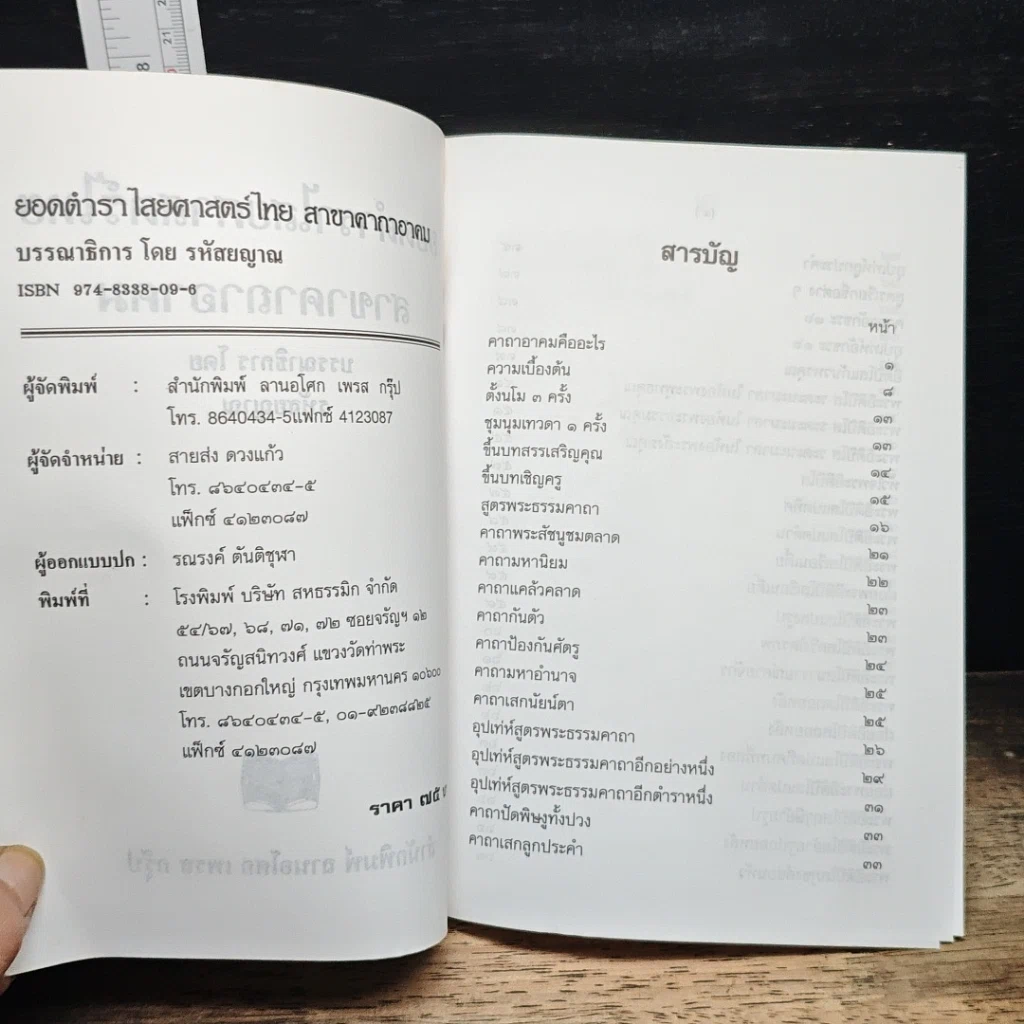 21
8
ยอดตำราไสยศาสตร์ไทย สาขาคาถาอาคม
บรรณาธิการ โดย รหัสยญาณ
ISBN 974-8338-09-6
ผู้จัดพิมพ์ : สำนักพิมพ์ ลานอโศก เพรส กรุ๊ป
โทร. 8640434-5แฟ็กซ์ 4123087
ผู้จัดจำหน่าย : สายส่ง ดวงแก้ว
โทร. ๘๖๔๐๔๓๔-๕
แฟ็กซ์ ๔๑๒๓๐๘๗
ผู้ออกแบบปก : รณรงค์ ตันติชุฬา
พิมพ์ที่ : โรงพิมพ์ บริษัท สหธรรมิก จำกัด
๕๔/๖๗, ๖๘, ๗๑, ๗๒ ซอยจรัญฯ ๑๒
ถนนจรัญสนิทวงศ์ แขวงวัดท่าพระ
เขตบางกอกใหญ่ กรุงเทพมหานคร ๑๐๖๐๐
โทร. ๘๖๔๐๔๓๔-๕, ๐๑-๙๒๓๘๘๒๕
แฟ็กซ์ ๔๑๒๓๐๘๗
ราคา ๗๕
สารบัญ
หน้า
คาถาอาคมคืออะไร ๑
ความเบื้องต้น ๘
ตั้งนโม ๓ ครั้ง ๑๓
ชุมนุมเทวดา ๑ ครั้ง ๑๓
ขึ้นบทสรรเสริญคุณ ๑๔
ขึ้นบทเชิญครู ๑๕
สูตรพระธรรมคาถา ๑๖
คาถาพระสัชนูชมตลาด ๒๑
คาถามหานิยม ๒๒
คาถาแคล้วคลาด ๒๓
คาถากันตัว ๒๓
คาถาป้องกันศัตรู ๒๔
คาถามหาอำนาจ ๒๕
คาถาเสกนัยน์ตา ๒๕
อุปเท่ห์สูตรพระธรรมคาถา ๒๖
อุปเท่ห์สูตรพระธรรมคาถาอีกอย่างหนึ่ง ๒๙
อุปเท่ห์สูตรพระธรรมคาถาอีกตำราหนึ่ง ๓๑
คาถาปัดพิษงูทั้งปวง ๓๓
คาถาเสกลูกประคำ ๓๓